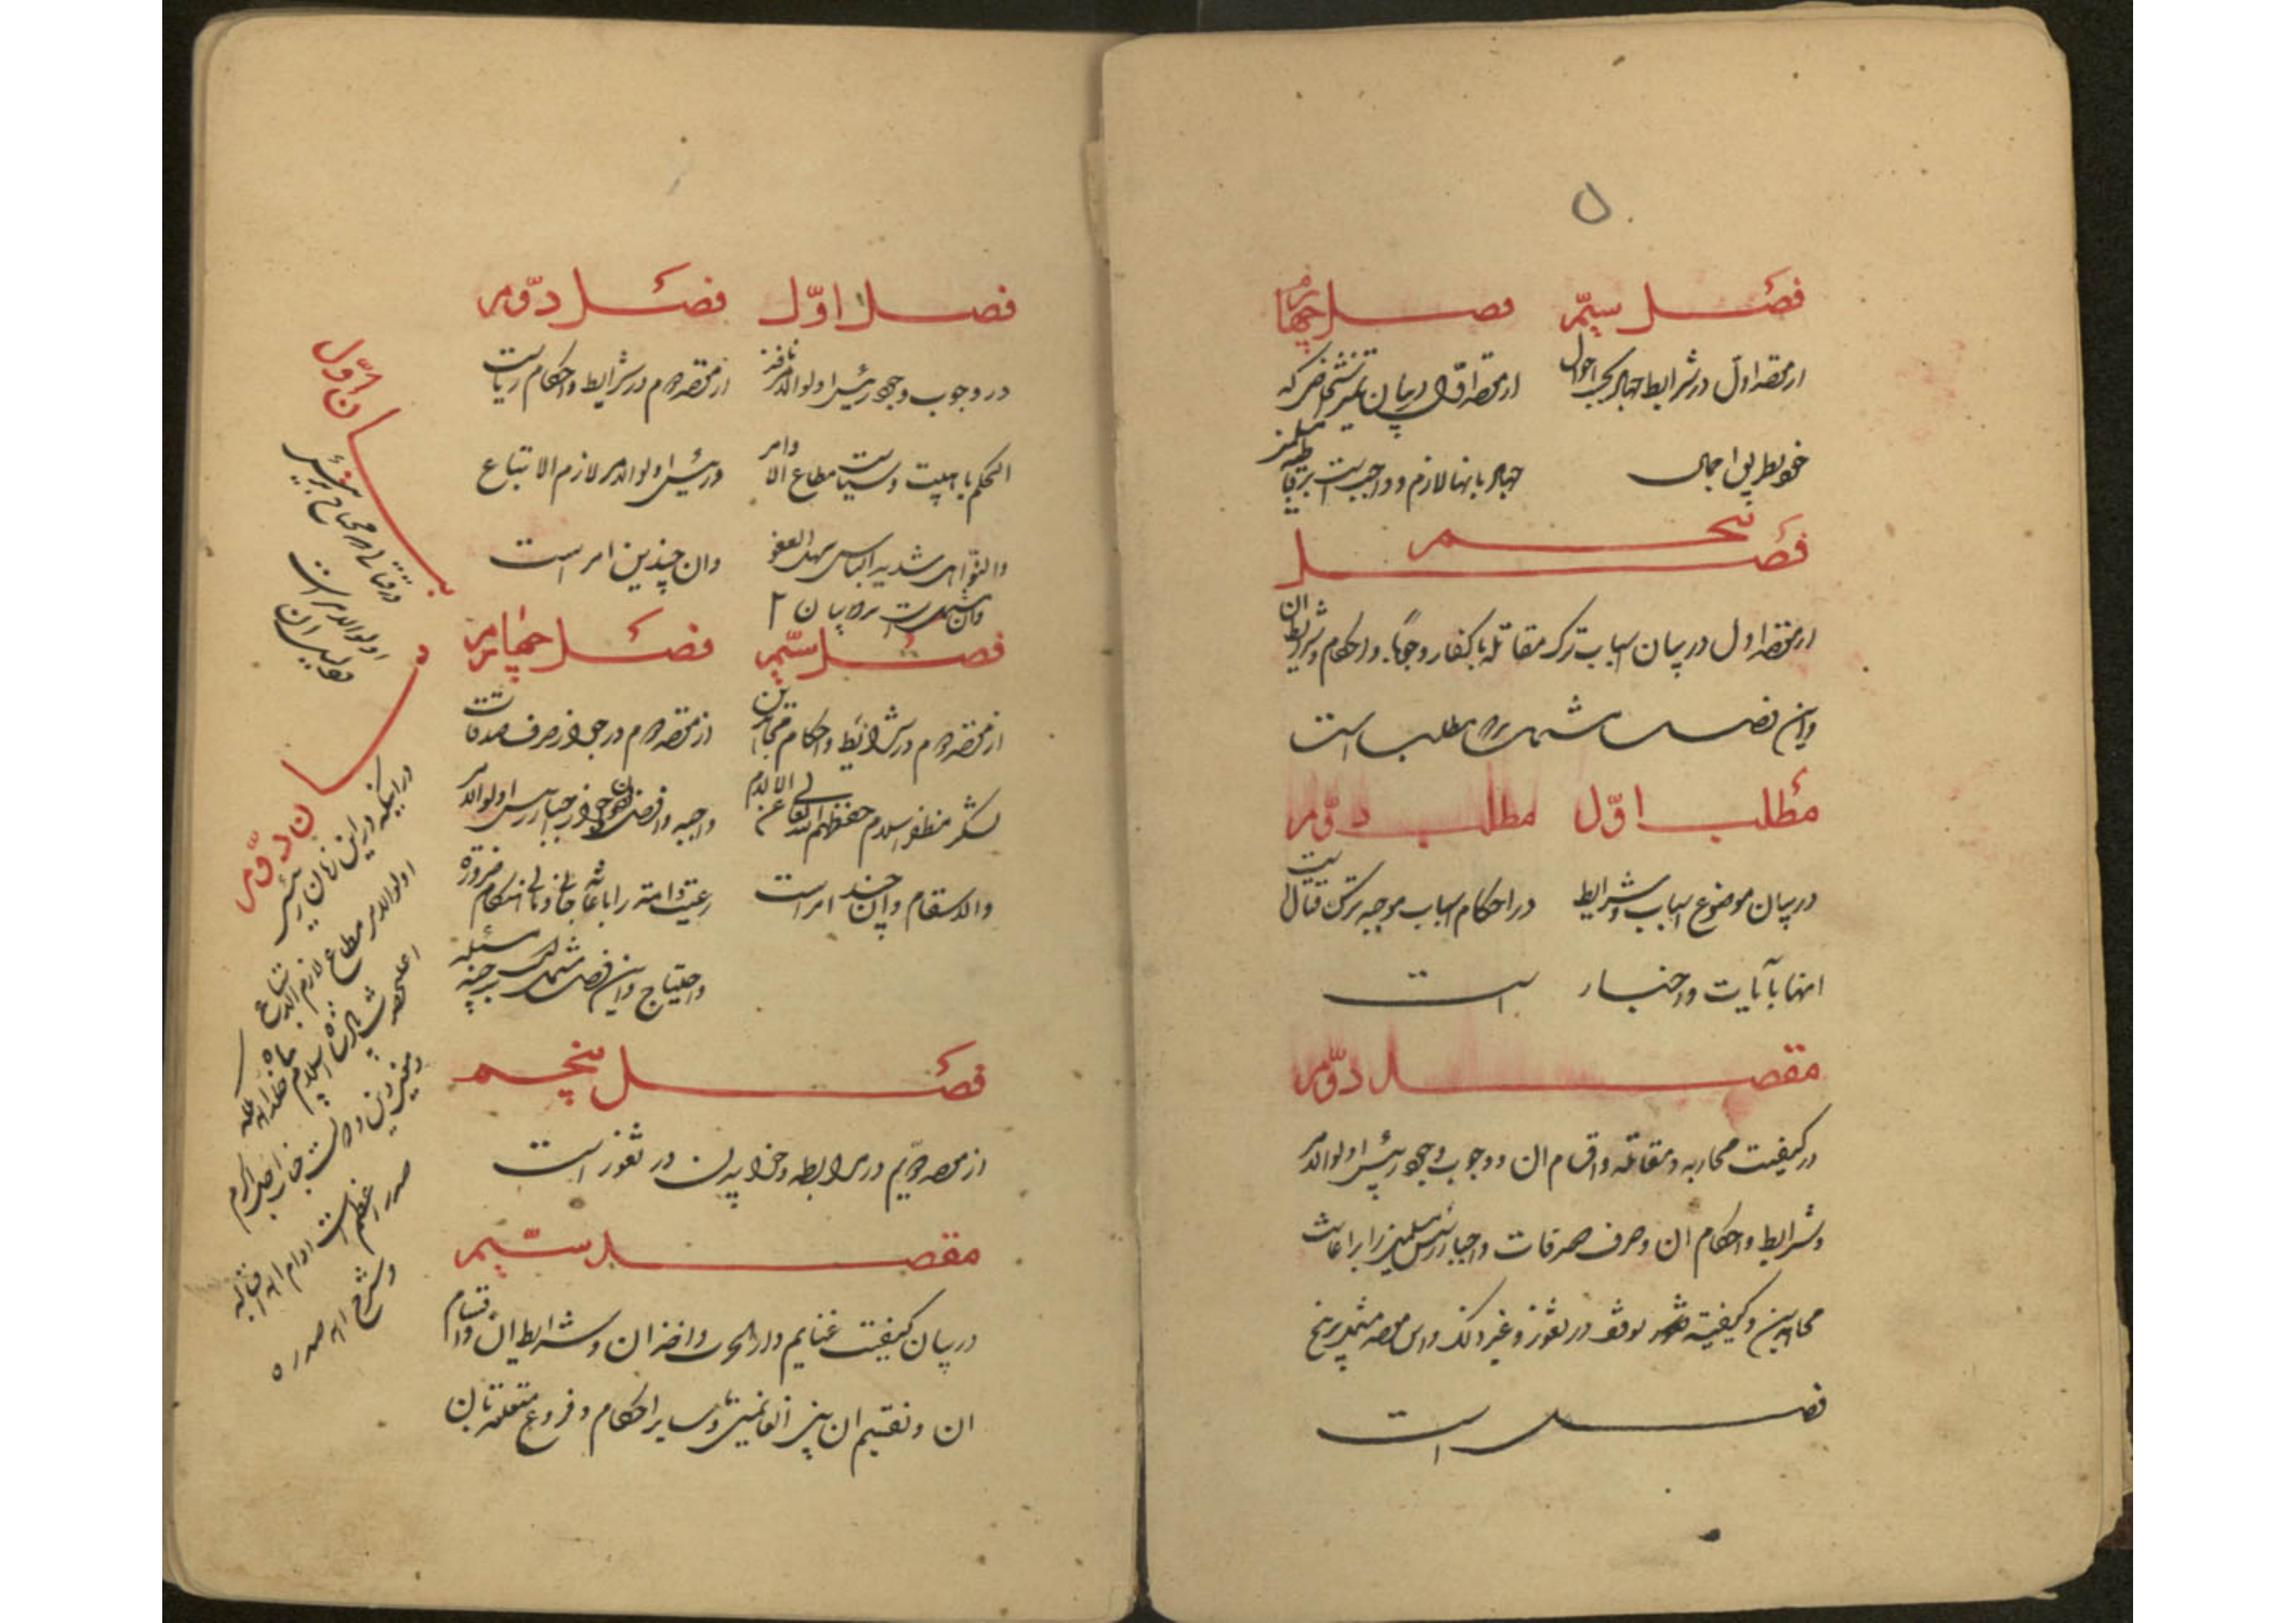 ۵
فصل سیّم
از مقصد اول در شرایط جهاد بحسب احوال
خو بطریق اجمال
فصل چهارم
از مقصد اول در بیان که
جهاد بانها لازم و واجبست بر
فصل پنجم
از مقصد اول در بیان اسباب ترک مقاتله با کفار وجوبا و احکام و شرایط ان
واین فصل مشتمل بر دو مطلب است
مطلب اوّل
در بیان موضوع اسباب و شرایط
انها بآیات و اخبار
مطلب دوّم
در احکام اسباب موجبه ترک قتال
است
مقصد دوّم
در کیفیت محاربه و مقاتله و اقسام ان و وجوب وجود رئیس اولوالامر
و شرایط و احکام ان و صرف صدقات واجبه رئیس مسلمین را براعایت
مجاهدین و کیفیته در ثغور و غیر ذلک واین مقصد مشتمل بر پنج
فصل است
فصل اوّل
در وجوب وجود رئیس اولوالامر نافذ
الحکم با هیبت و سیاست مطاع الاوامر
والنّواهی شدید الباس سهل العفو
وان مشتملست بر دو بیان ۲
فصل دوّم
از مقصد دوم در شرایط و احکام ریاست
و رئیس اولوالامر لازم الاتباع
وان چندین امر است
فصل سیّم
از مقصد دوم در شرائط و احکام مجاهدین
لشکر منظفر اسلام حفظهم الله تعالی عن الالام
والاسقام وان چند امر است
فصل چهارم
از مقصد دوم در جواز صرف صدقات
واجبه رئیس اولوالامر
رعیت و امة را باعانة جانی و مالی هنکام ضرورة
و احتیاج واین فصل مشتملست بر چند مسئله
فصل پنجم
از مقصد دویم در مرابطه و در ثغور است
مقصد سیّم
در بیان کیفیت غنایم دارالحرب و اخذ ان و شرایط ان و اقسام
ان و تقسیم ان بین الغانمین و سایر احکام و فروع متعلقه بان
بیان اوّل
اولوالامر است
بیان دوّم
در اینکه در این زمان رئیس
اولوالامر مطاع لازم الاتباع
اعلیحضرت اسلام پناه
و معین دین و دولت جناب اجل اکرم
صدر اعظم است ادام الله اقباله
و شرح الله صدره